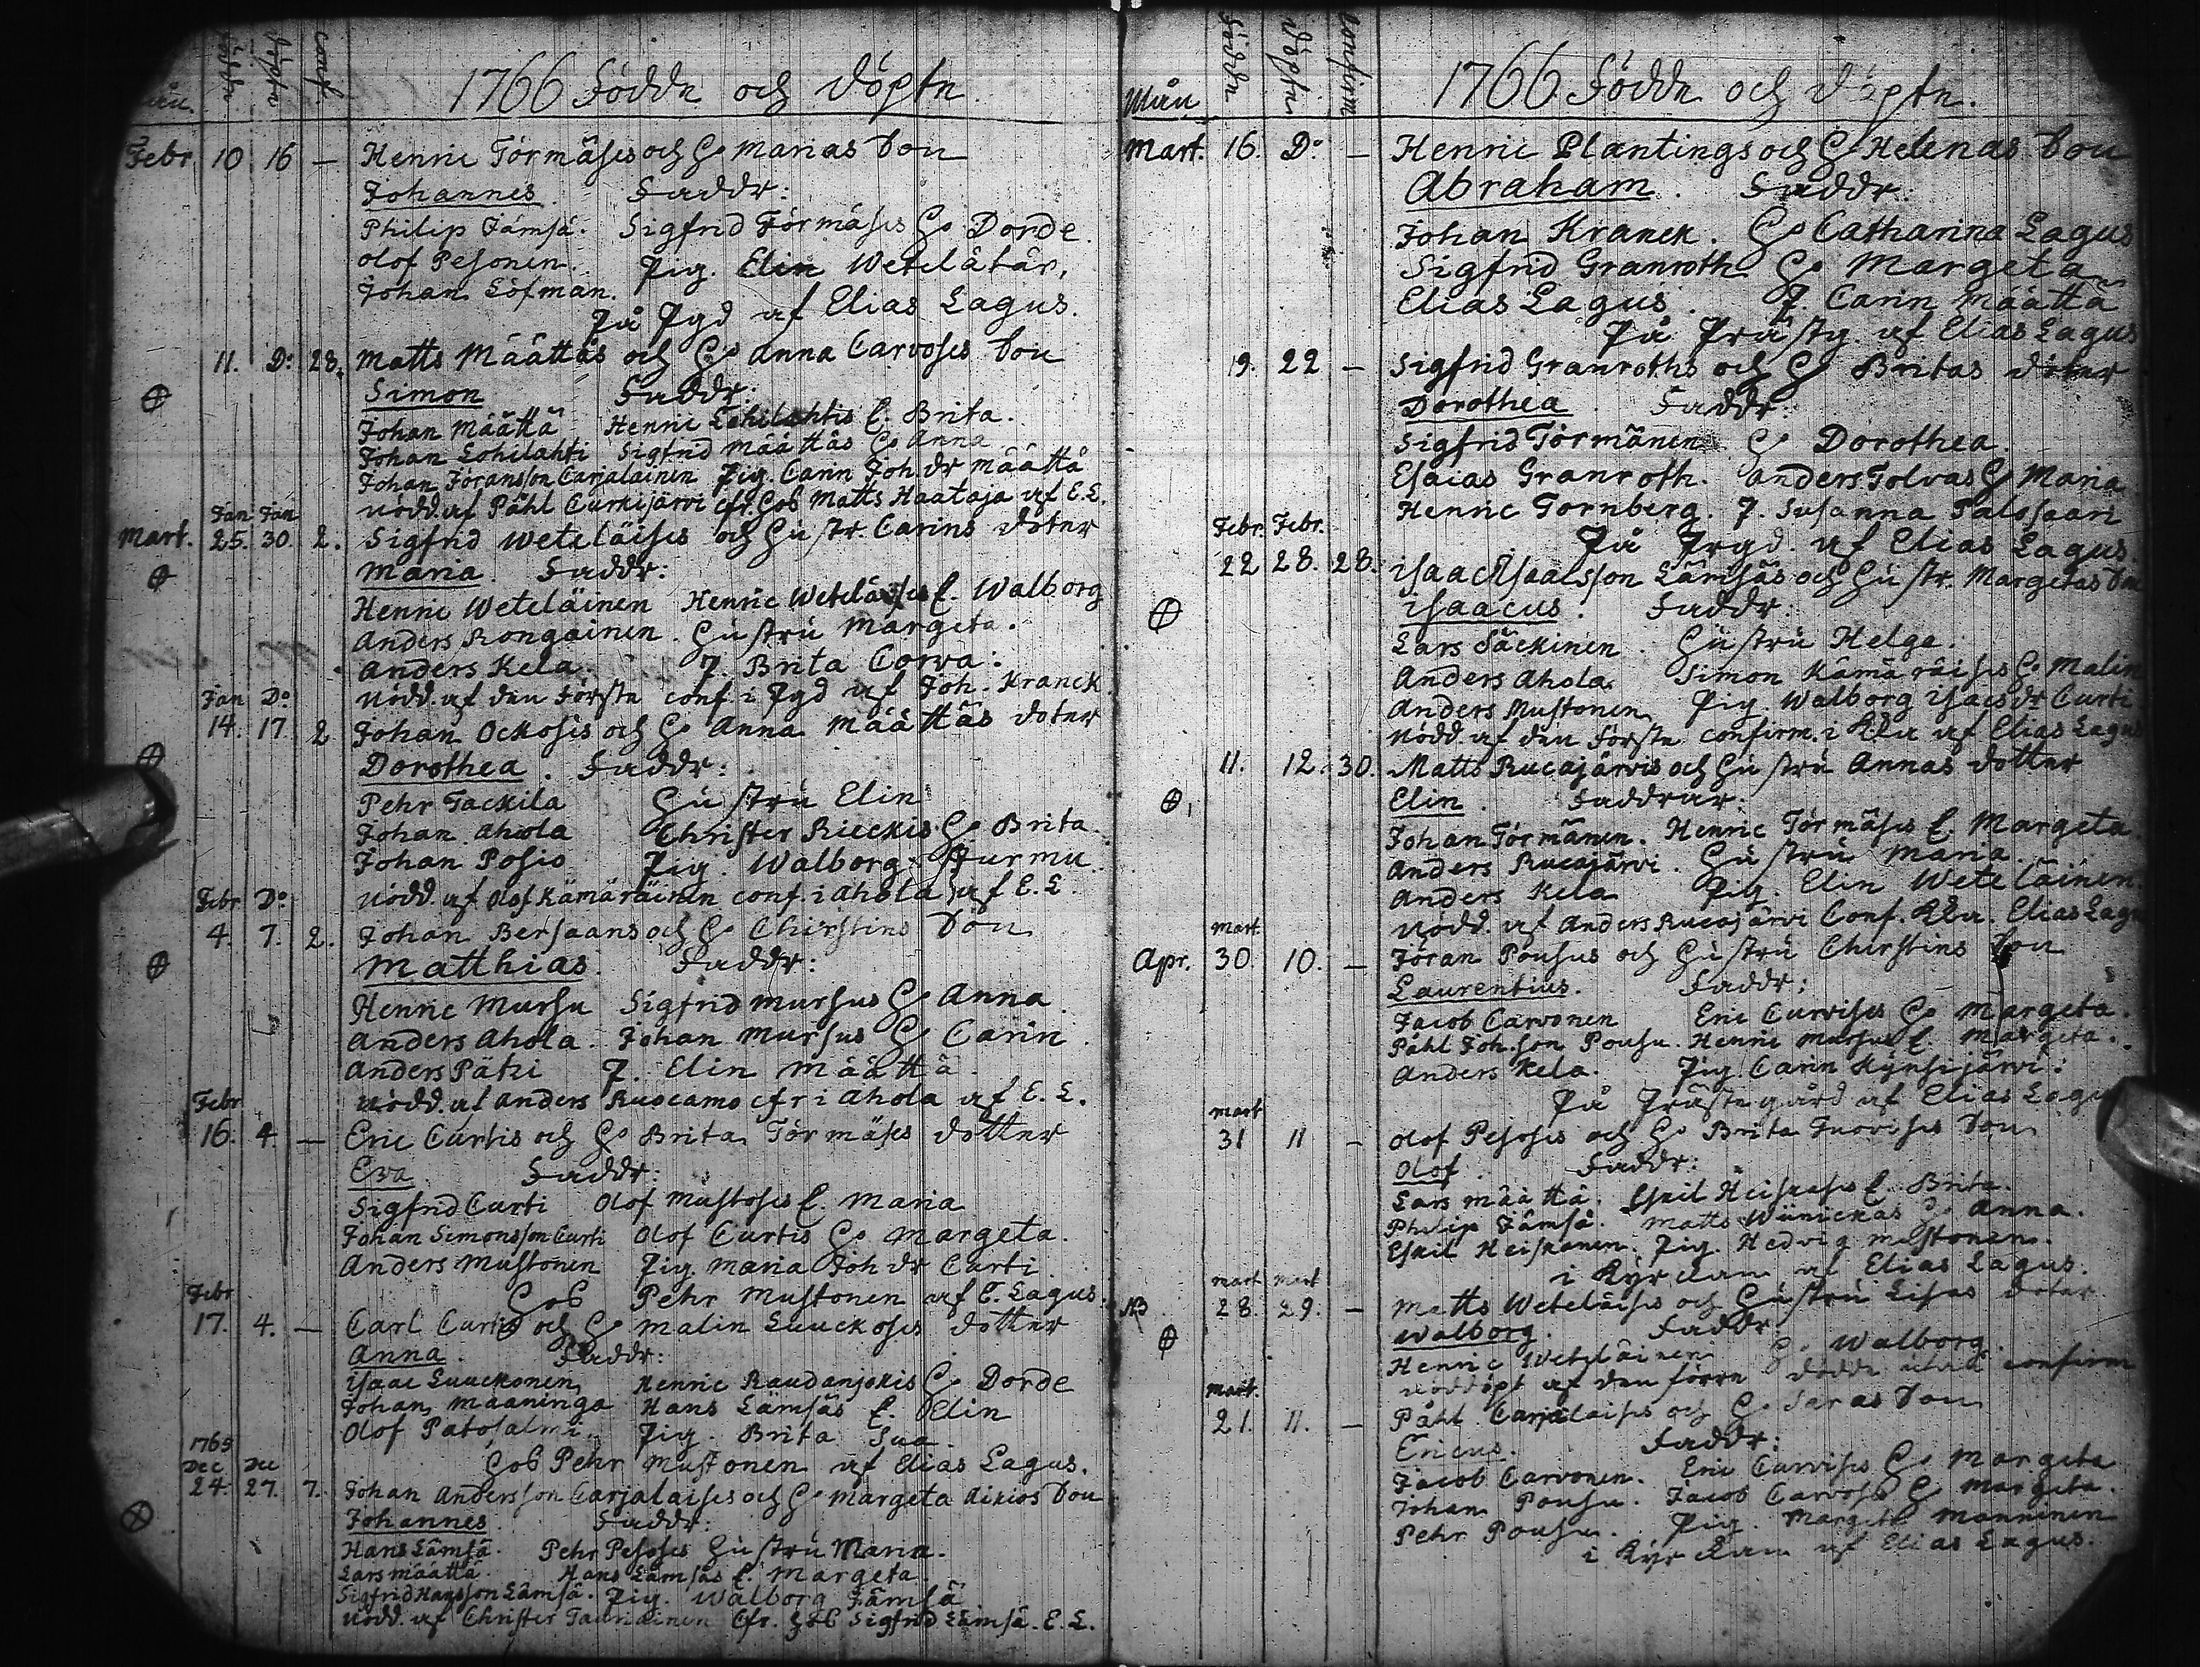 Mån. födde döpte conf. 1766 Födde och döpte.
Febr. 10 16 — Henric Törmäses och H. Marias Son
Johannes. Faddr:
Philip Jämsä. Sigfrid Törmäses H. Dorde.
Olof Pesonen. Pig. Elin Wetelätär,
Johan Löfman.
På Pgd af Elias Lagus.
11. Do 23. Matts Määttäs och H. Anna Carvoses Son
Simon Faddr:
Johan Määttä Henric Lohilahtis E. Brita.
Johan Lohilahti Sigfrid Määttäs H. Anna
Johan Jöransson Carjalainen Pig. Carin Joh dr Määttä
Nödd. af Påhl Curkijärvi cfr. hos Matts Haataja af E. L.
Jan Jan
Mart. 25. 30. 2. Sigfrid Weteläises och Hustr. Carins doter
Maria. Faddr:
Henric Weteläinen Henric Weteläises E. Walborg
Anders Rongainen. Hustru Margeta.
Anders Kela. P. Brita Corva.
Jan Do Nödd. af den Förste conf. i Pgd af Joh. Kranck
14. 17. 2 Johan Ockosis och H. Anna Määttäs doter
Dorothea. Faddr:
Pehr Tackila Hustru Elin
Johan Ahola Christer Rieckis H. Brita.
Johan Posio Pig. Walborg Furmu
Febr Do Nödd. af Olof Kämäräinen conf. i Ahola af E. L.
4. 7. 2. Johan Bersaans och H. Chirstins Son
Matthias. Faddr:
Henric Mursu Sigfrid Mursus H. Anna
Anders Ahola. Johan Mursus H. Carin.
Anders Pätzi P. Elin Määttä.
Febr Nödd. af Anders Ruocamo cfr i Ahola af E. L.
16. 4. — Eric Curtis och H. Brita Törmäses dotter
Eva. Faddr:
Sigfrid Curti Olof Mustoses E. Maria
Johan Simonsson Curti Olof Curtis H. Margeta.
Anders Mustonen Pig. Maria Joh dr Curti
Febr Hos Pehr Mustonen af E. Lagus.
17. 4. — Carl Curtis och H. Malin Luuckoses dotter
Anna. Faddr:
Isaac Luuckonen Henric Raudanjokis H. Dorde
Johan Maaninga Hans Lämsäs E. Elin
Olof Patosalmi. Pig. Brita Sua.
1765
Dec Dec Hos Pehr Mustonen af Elias Lagus.
24. 27. 7. Johan Andersson Carjalaises och H. Margeta Aikios Son
Johannes. Faddr:
Hans Lämsä. Pehr Pesoses Hustru Maria.
Lars Määttä. Hans Lämsäs E. Margeta.
Sigfrid Hansson Lämsä. Pig. Walborg Jämsä
Nödd. af Christer Tauriainen Cfr. hos Sigfrid Lämsä. E. L.
Mån födde döpte Confirm 1766 Födde och döpte.
Mart. 16. Do — Henric Plantings och H. Helenas Son
Abraham. Faddr:
Johan Kranck. H. Catharina Lagus
Sigfrid Granroth H. Margeta
Elias Lagus. P. Carin Määttä
På Prästg. af Elias Lagus
19. 22 — Sigfrid Granroths och H. Britas doter
Dorothea. Faddr:
Sigfrid Törmänen H. Dorothea.
Esaias Granroth. Anders Tolvas H. Maria
Henric Tornberg. P. Susanna Palosaari
Febr. Febr. På Prgd. af Elias Lagus.
22 28. 28. Isaac Isaacsson Lämsäs och Hustr. Margetas Son
Isaacus. Faddr:
Lars Säckinen. Hustru Helga.
Anders Ahola. Simon Kämäräises H. Malin
Anders Mustonen Pig. Walborg Isacsdr Curti
Nödd af den Förste confirm. i af Elias Lagus
11. 12. 30. Matts Rucajärvis och Hustru Annas dotter
Elin. Faddrar:
Johan Törmänen. Henric Törmäses E. Margeta
Anders Rucajärvi. Hustru Maria.
Anders Kela Pig. Elin Weteläinen.
Mart. Nödd. af Anders Rucajärvi Conf. Elias Lagus
Apr. 30. 10. — Jöran Pousus och Hustru Chirstins Son
Laurentius. Faddr:
Jacob Carvonen Eric Curvises H. Margeta.
Påhl Joh.son Pousu. Henric Mursus E. Margeta.
Anders Kela. Pig. Carin Kynsijärvi.
Mart På Prästegård af Elias Lagus
31 11 — Olof Pesoses och H. Brita Son
Olof. Faddr:
Lars Määttä. Eskil Heiskases E. Brita.
Philip Jämsä. Matts Wänickas H. Anna.
Eskil Heiskanen. Pig. Hedvig Mustonen.
Mart Mart i Kyrckan af Elias Lagus.
NB 28. 29. — Matts Weteläises och Hustru Lisas doter
Walborg. Faddr:
Henric Weteläinen H. Walborg.
Mart. Nöddöpt af den förre dödde utan confirm
21. 11. — Påhl Carjalaises och H. Saras Son
Ericus. Faddr:
Jacob Carvonen. Eric Carvises H. Margeta
Johan Pousu. Jacob Carvoses H. Margeta.
Pehr Pousu. Pig. Margeta Manninen
i Kyrckan af Elias Lagus.